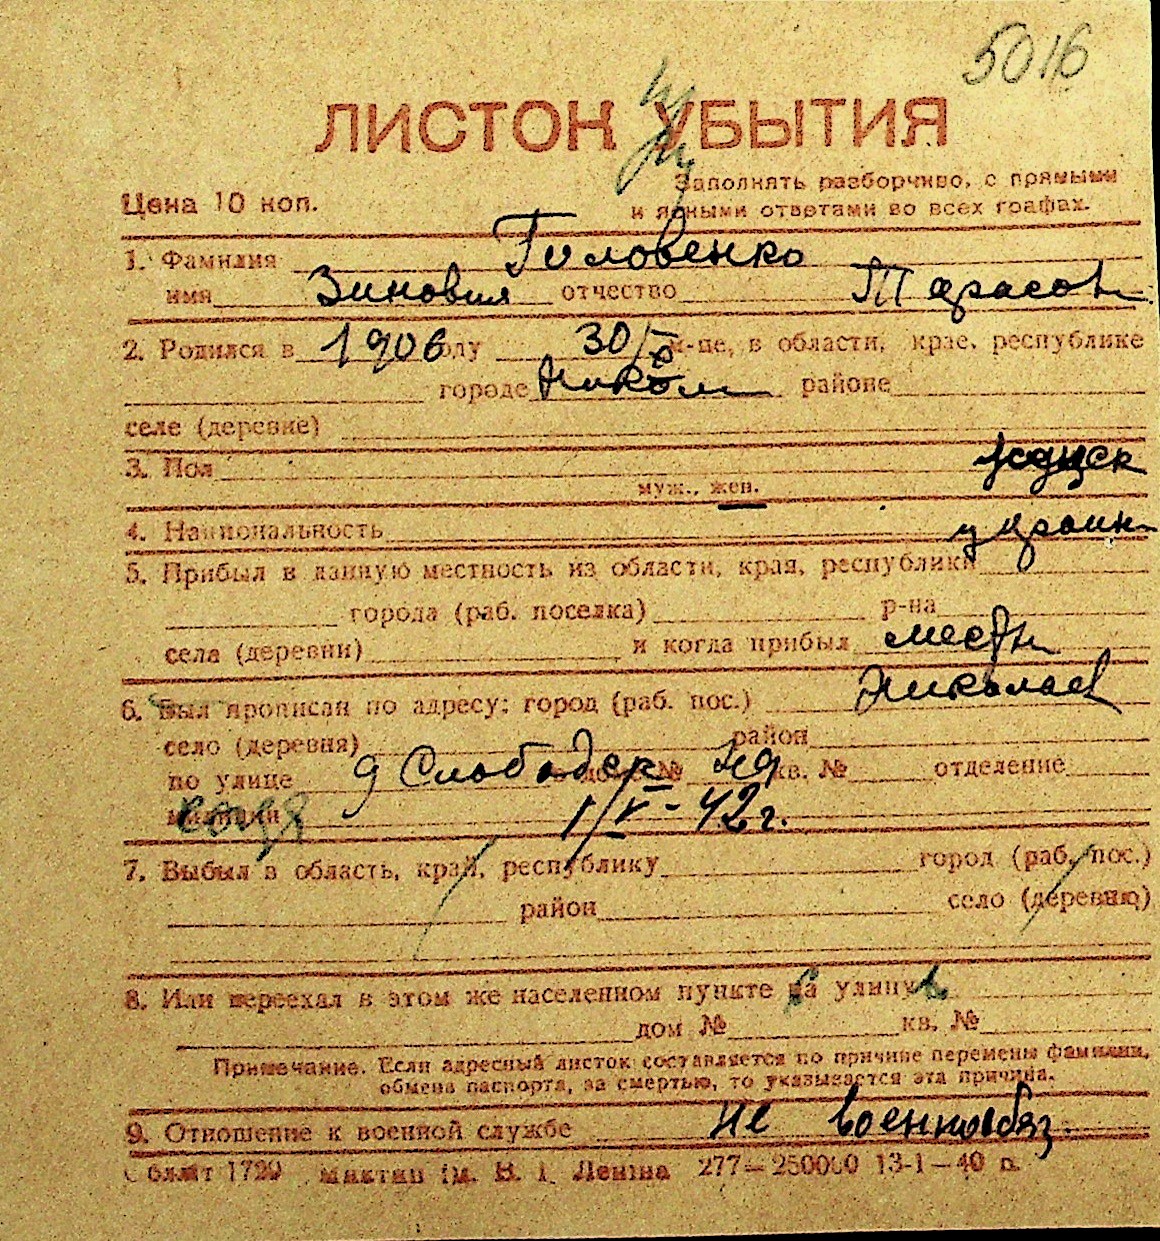 5016
ЛИСТОК УБЫТИЯ
Цена 10 коп.
Заполнять разборчиво, с прямыми
и ясными ответами во всех графах.
1. Фамилия Головенко
имя Зиновия отчество Тарасов
2. Родился в 1906 году 30/X м-це, в области, крае, республике
городе Никол районе
селе (деревне)
3. Пол муж., жен.
4. Национальность украин
5. Прибыл в данную местность из области, края, республики
города (раб. поселка) р-на
села (деревни) и когда прибыл местн
6. Был прописан по адресу: город (раб. пос.) Николаев
село (деревня) район
по улице 9 Слободск дом № кв. № отделение
милиции 1/V-42 г.
7. Выбыл в область, край, республику город (раб. пос.)
район село (деревню)
8. Или переехал в этом же населенном пункте на улицу
дом № кв. №
Примечание. Если адресный листок составляется по причине перемены фамилии,
обмена паспорта, за смертью, то указывается эта причина.
9. Отношение к военной службе не военнообяз.
Облліт 1729 ім. В. І. Леніна 277—250000 13-1—40 р.